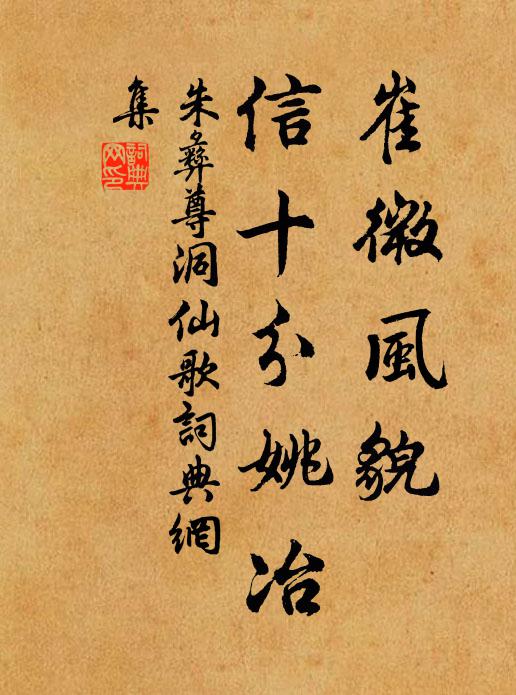 崔微風貌
信十分姚冶
朱彝尊洞仙歌詞典網
集
詞典
网印